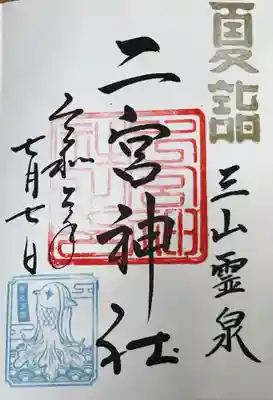 夏詣
三山霊泉
二宮神社
令和二年
七月七日